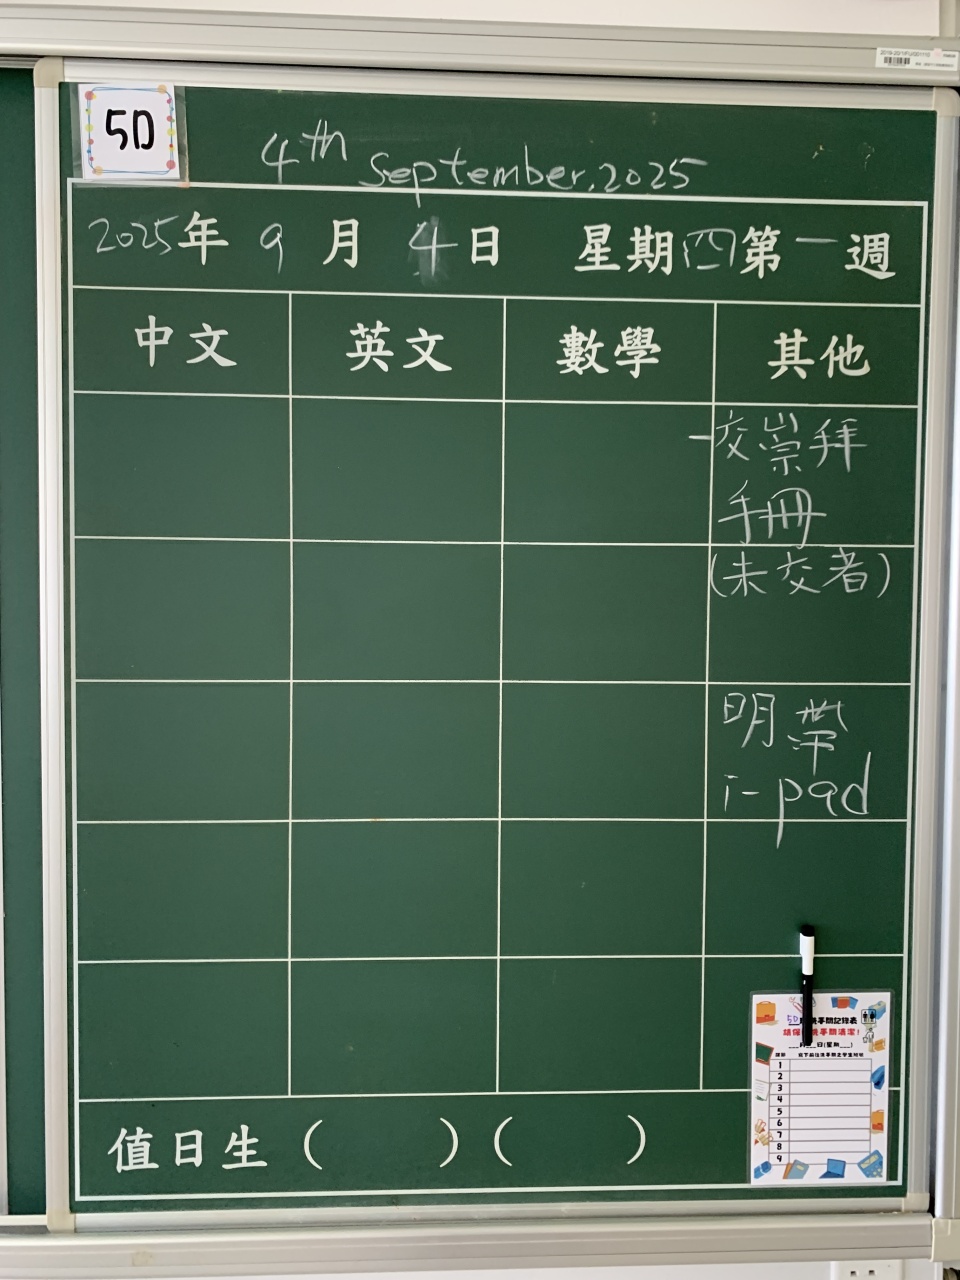 5D
4th September.2025
2025年 9月 4日 星期四 第一週
中文 英文 數學 其他
-交崇拜
手冊
(未交者)
明帶
i-pad
值日生 ( ) ( )
5D
日(星期___)
1
2
3
4
5
6
7
8
9